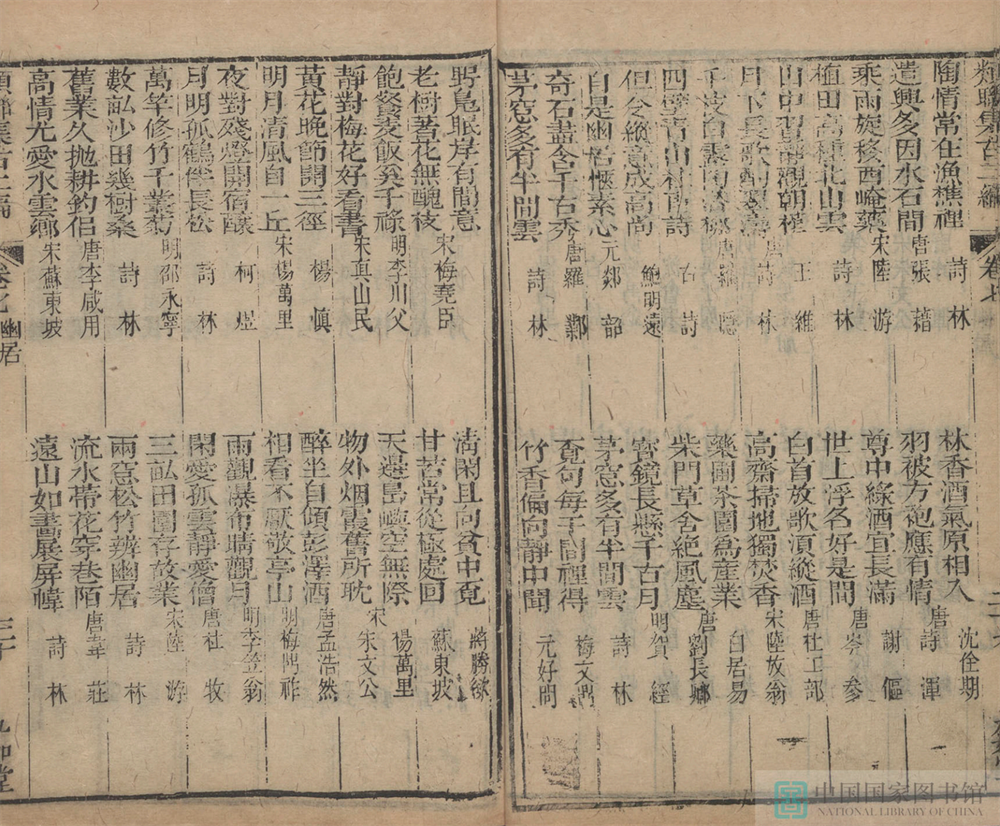 陶情常在漁樵裡　詩林
林香酒氣原相入　沈佺期
遣興多因水石間　唐張藉
羽被方袍應有情　唐詩渾
乘雨旋移西崦藥　宋陸游
尊中綠酒宜長滿　謝傴
植田高種北山雲　詩林
世上浮名好是閒　唐岑參
山中習靜觀朝槿　王維
白首放歌須縱酒　唐杜工部
月下長歌　詩林
高齋掃地獨焚香　宋陸放翁
千波白雲　唐羅隱
藥圃茶園為產業　白居易
四壁青山　古詩
柴門草舍絕風塵　唐劉長鄉
但令縱意成高尚　鮑明遠
寶鏡長懸千古月　明賀經
自是幽居愜素心　元郯韶
茅窓多有半間雲　詩林
奇石盡含千古秀　唐羅鄴
覓句每于閒裡得　梅文
茅窓多有半間雲　詩林
竹香偏向靜中聞　元好問
野鳧眠岸有閒意　宋梅堯臣
清閑且向貧中覓　蔣勝欲
老樹著花無醜枝　明李川父
甘苦常從極處回　蘇東坡
飽餐麥飯笑千祿　宋真山民
天邊島嶼空無際　楊萬里
靜對梅花好看書
物外烟霞舊所耽　宋朱文公
黃花晚節開三徑　楊慎
醉坐自傾彭澤酒　唐孟浩然
明月清風自一丘　宋楊萬里
相看不厭敬亭山　明梅禹祚
夜對殘燈開宿釀　柯煜
雨觀瀑布晴觀月　明李笠翁
月明孤鶴伴長松　詩林
閑愛孤雲靜愛僧　唐杜牧
萬竿修竹千叢菊　明邵永寧
三畝田園存故業　宋陸游
數畝沙田幾樹桑　詩林
兩窓松竹辨幽居　詩林
舊業久拋耕釣侶　唐李咸用
流水帶花穿巷陌　唐韋莊
高情尤愛水雲鄉　宋蘇東坡
遠山如畵展屏幛　詩林
卷七　幽居
三十
中国国家图书馆
NATIONAL LIBRARY OF CHINA